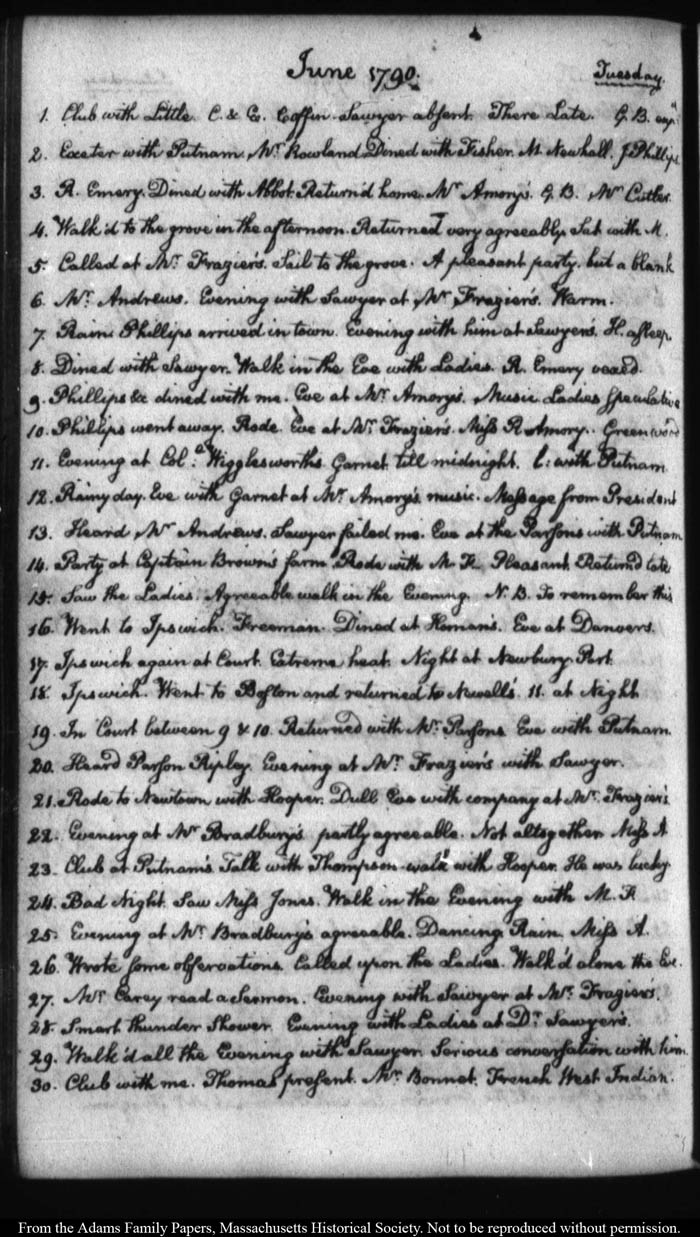 June 1790. Tuesday.
1. Club with Little. C. & G. Coffin. Sawyer absent. There Late. G. B.
2. Exeter with Putnam, Mr. Rowland. Dined with Fisher. M. Newhall. J Phillips
3. R. Emery. Dined with Abbot. Return'd home. Mr Amory's. G. B. Mr Cutler.
4. Walk'd to the grove in the afternoon. Returned very agreeably. Sat with M.
5. Called at Mr. Frazier's. Sail to the grove. A pleasant party. but a blank
6. Mr. Andrews. Evening with Sawyer at Mr. Frazier's. Warm.
7. Rain. Phillips arrived in town. Evening with him at Sawyer's. H. asleep.
8. Dined with Sawyer. Walk in the Eve with Ladies. R. Emery
9. Phillips &c dined with me. Eve at Mr. Amory's. Music Ladies Speculative
10. Phillips went away. Rode. Eve at Mr. Frazier's. Miss R. Amory. Greenwood
11. Evening at Col: Wigglesworths. Garnet till midnight. with Putnam
12. Rainy day. Eve with Garnet at Mr. Amory's music. Message from President
13. Heard Mr Andrews. Sawyer failed me. Eve at the Parsons with Putnam
14. Party at Captain Brown's farm. Rode with M. F. Pleasant. Return'd late
15. Saw the Ladies. Agreeable walk in the Evening. N. B. To remember this
16. Went to Ipswich. Freeman. Dined at Homan's. Eve at Danvers.
17. Ipswich again at Court. Extreme heat. Night at Newbury-Port.
18. Ipswich. Went to Boston and returned to Newells. 11. at Night
19. In Court between 9 & 10. Returned with Mr. Parsons. Eve with Putnam.
20. Heard Parson Ripley. Evening at Mr. Frazier's with Sawyer.
21. Rode to Newtown with Hooper. Dull Eve with company at Mr. Frazier's
22. Evening at Mr Bradbury's partly agreeable. Not altogether. Miss A
23. Club at Putnam's. Talk with Thompson. walk with Hooper. He was lucky
24. Bad Night. Saw Miss Jones. Walk in the Evening with M. F
25. Evening at Mr Bradbury's agreeable. Dancing. Rain. Miss A.
26. Wrote some observations. Called upon the Ladies. Walk'd alone the Eve.
27. Mr. Carey read a Sermon. Evening with Sawyer at Mr. Frazier's.
28. Smart thunder Shower. Evening with Ladies at Dr. Sawyer's.
29. Walk'd all the Evening with Sawyer. Serious conversation with him.
30. Club with me. Thomas present. Mr Bonnet. French West Indian.
From the Adams Family Papers, Massachusetts Historical Society. Not to be reproduced without permission.